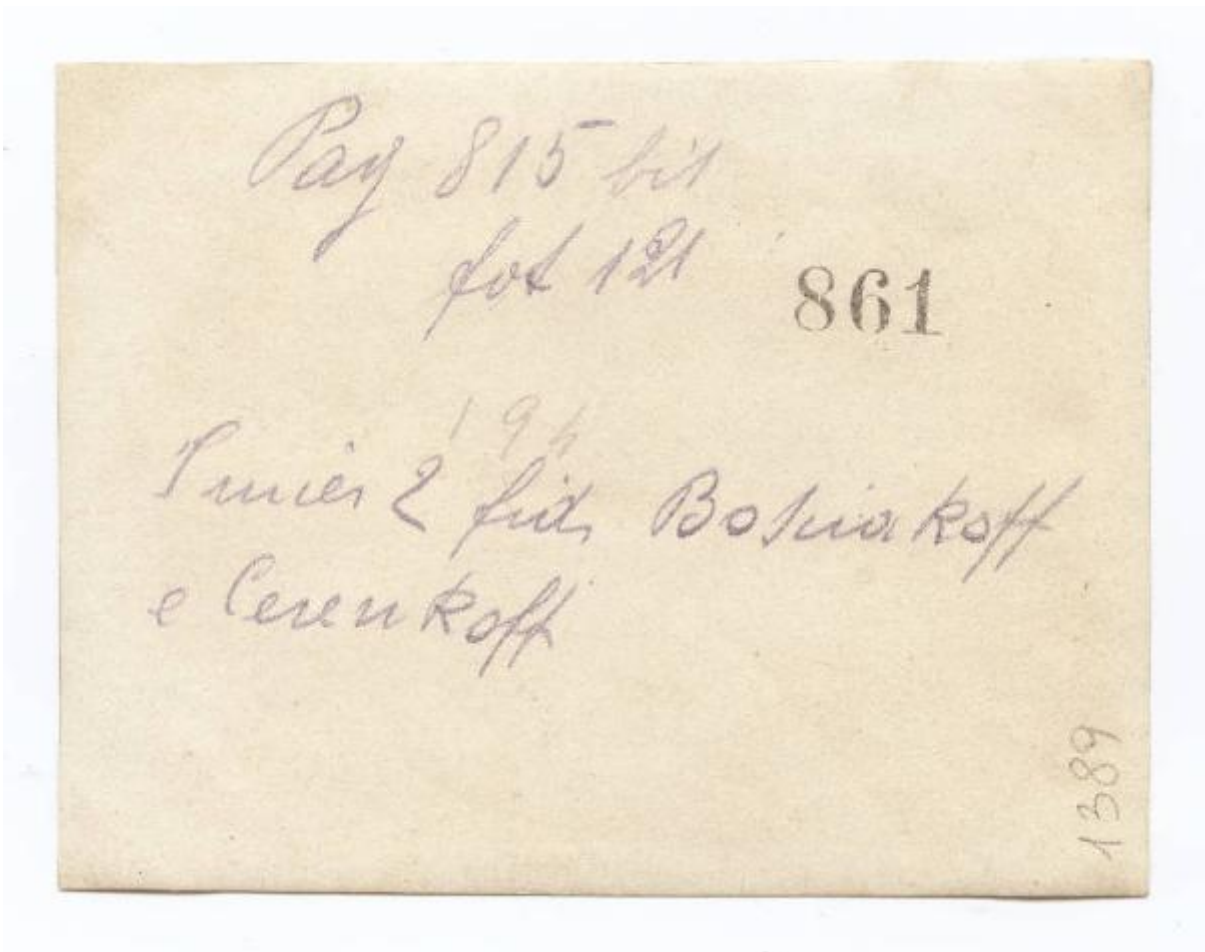 Pag 815 bis
fot 121
861
194
2 Bosniakoff
e Cerenkoff
1389